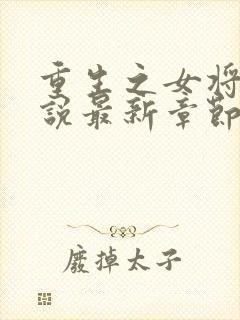 重生之女将
說最新章節
廢掉太子